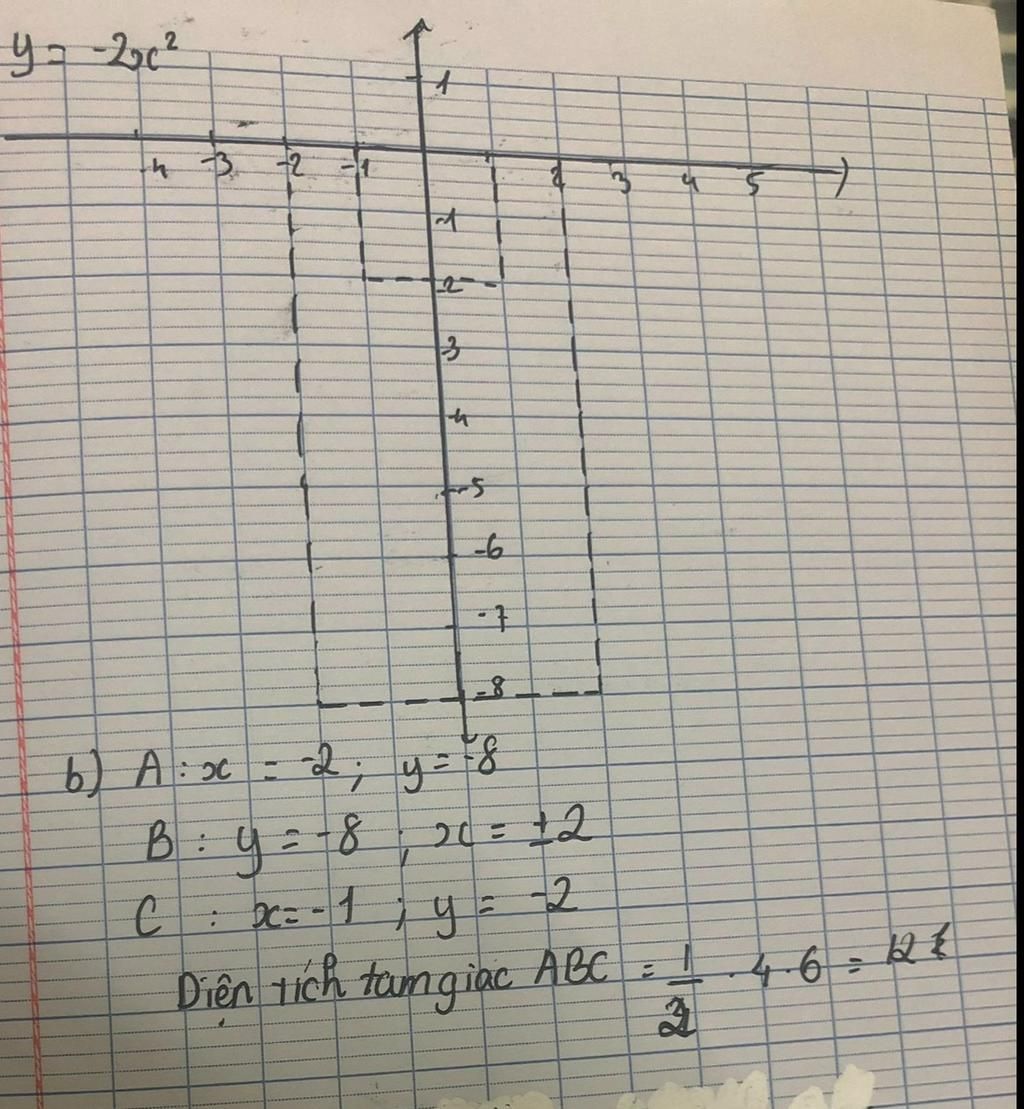 y = -2x²
1
-4 -3 -2 -1 2 3 4 5
-1
-2
3
-4
-5
-6
-7
-8
b) A : x = -2 ; y = -8
B : y = -8 ; x = ±2
C : x = -1 ; y = -2
Diện tích tam giác ABC = 1/2 . 4 . 6 = 12